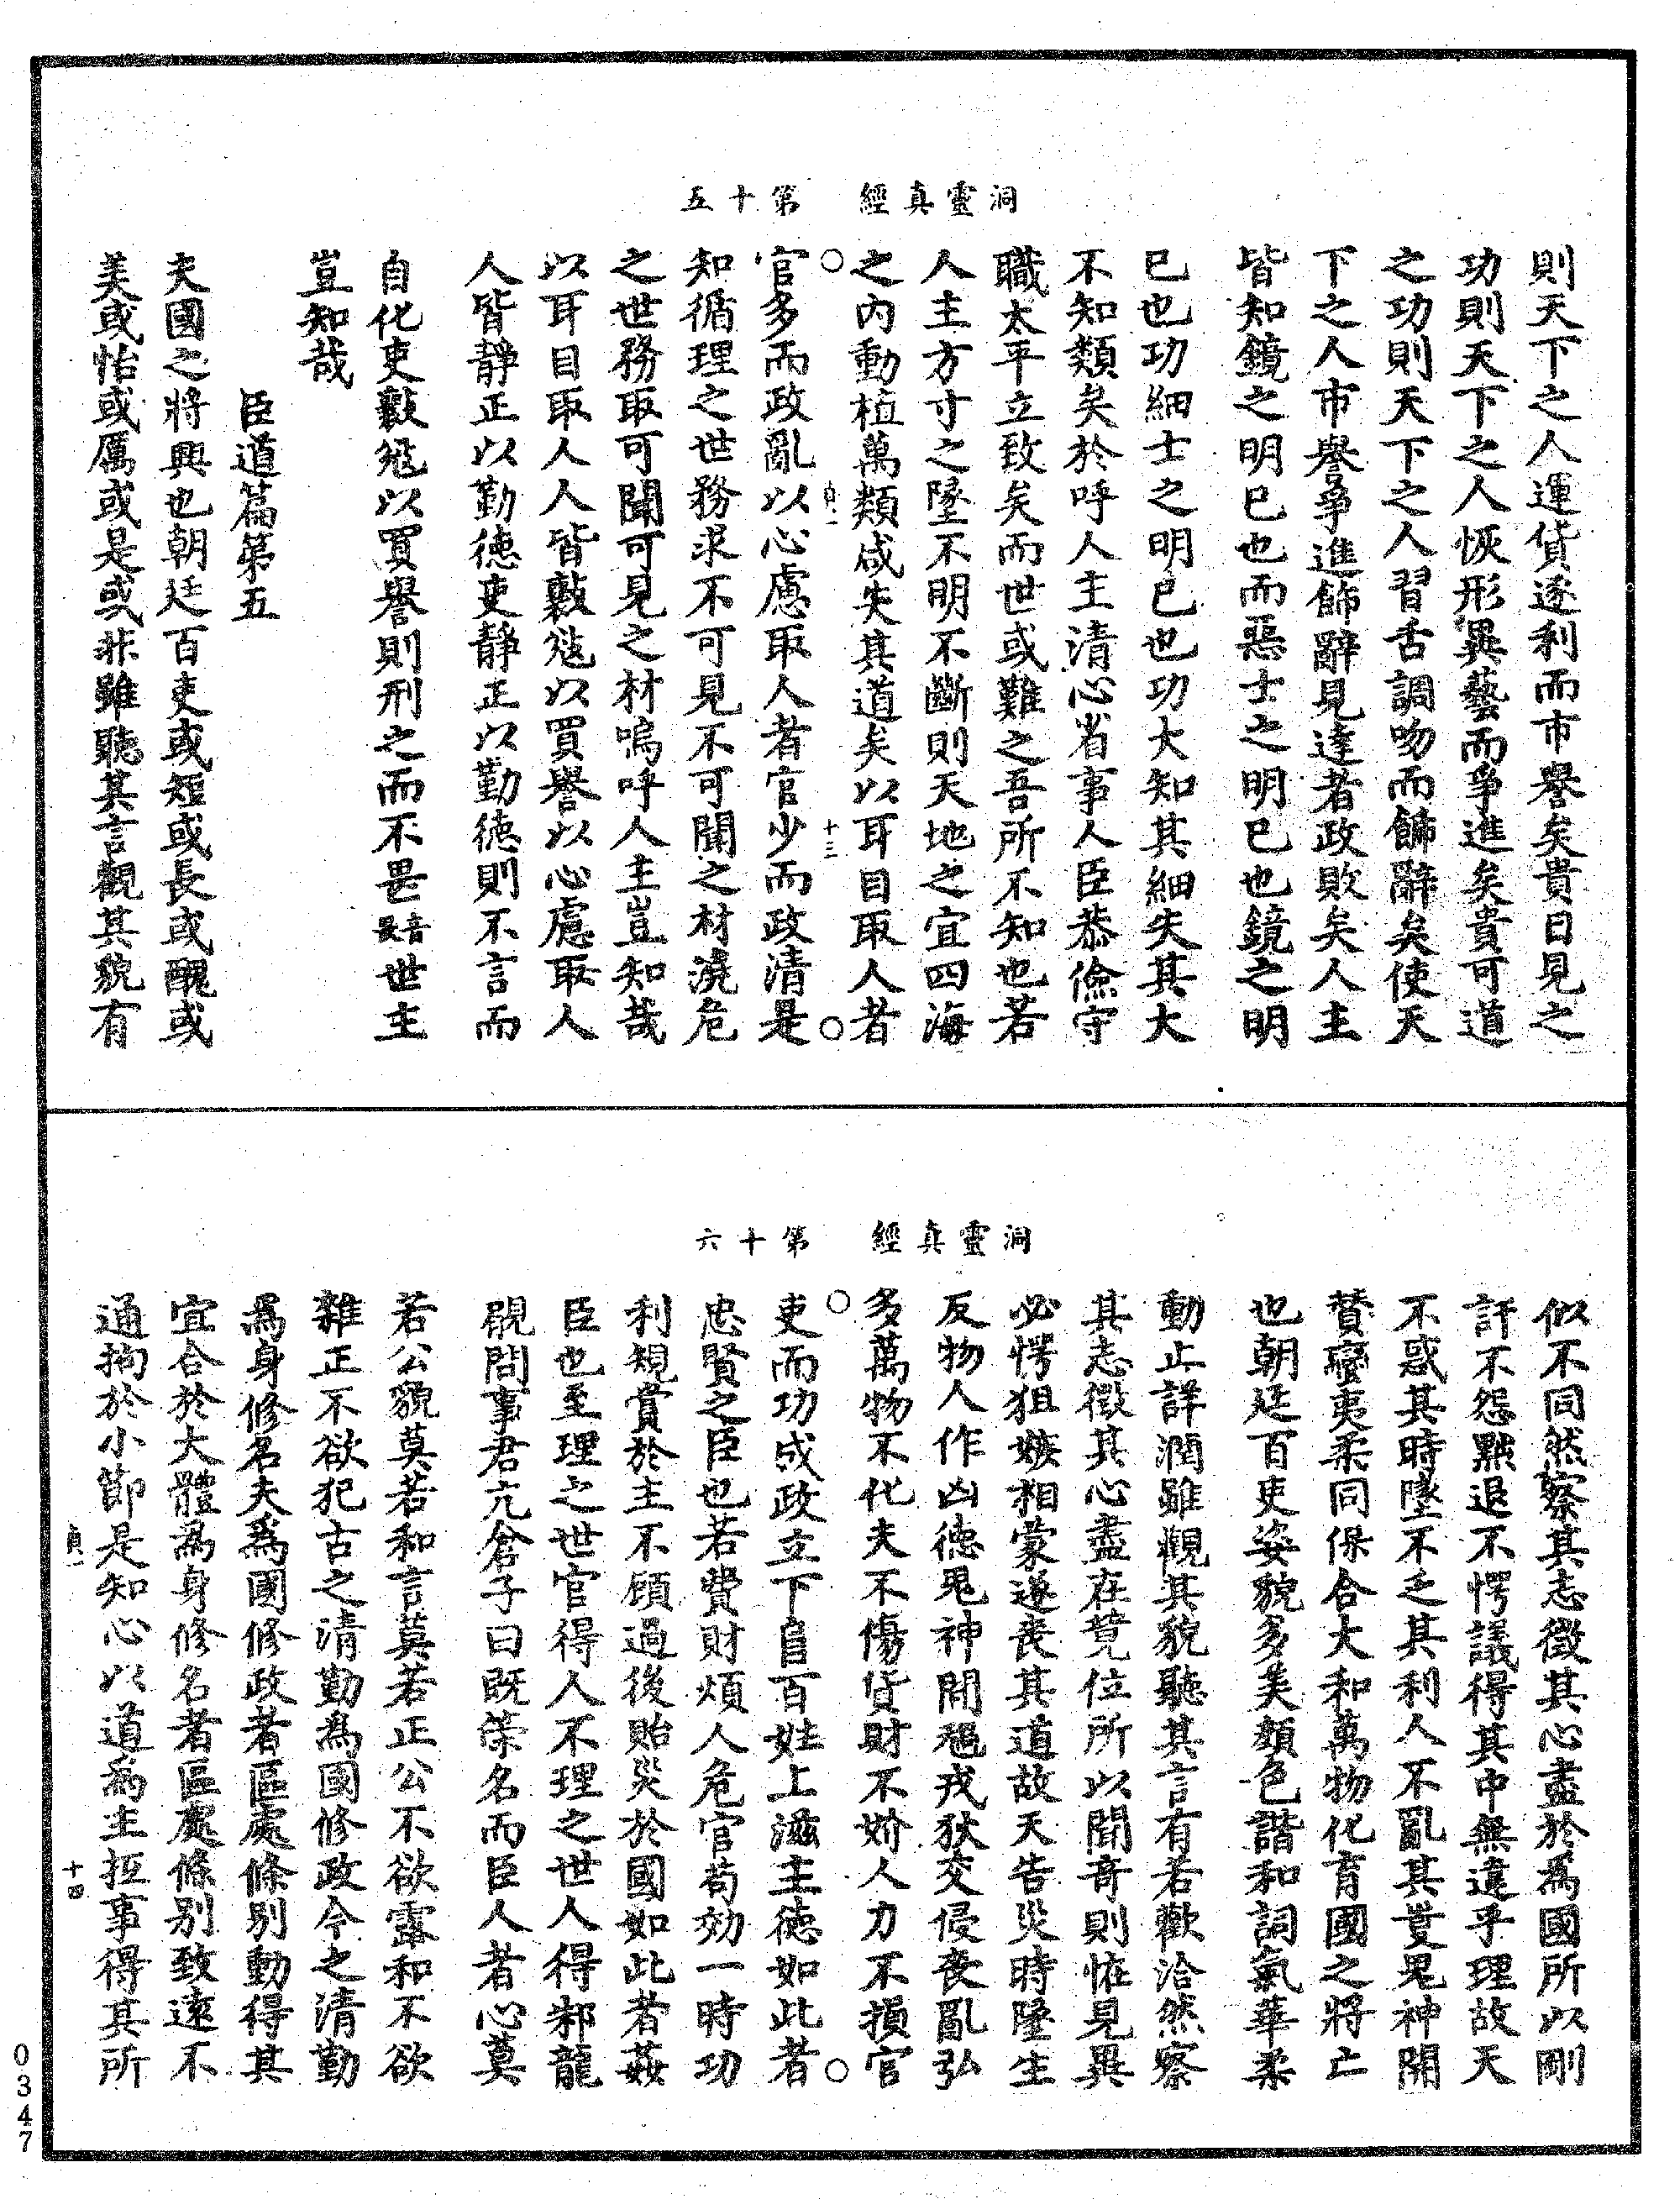 洞靈真經 第十五
則天下之人運貨逐利而市譽矣貴曰見之
功則天下之人恢形異藝而爭進矣貴可道
之功則天下之人習舌調吻而飾辭矣使天
下之人市譽爭進飾辭見達者政敗矣人主
皆知鏡之明己也而惡士之明己也鏡之明
己也功細士之明己也功大知其細失其大
不知類矣於呼人主清心省事人臣恭儉守
職太平立致矣而世或難之吾所不知也若
人主方寸之墜不明不斷則天地之宜四海
之內動植萬類咸失其道矣以耳目取人者
貞一 十三
官多而政亂以心慮取人者官少而政清是
知循理之世務求不可見不可聞之材澆危
之世務取可聞可見之材嗚呼人主豈知哉
以耳目取人人皆敪㝹以買譽以心慮取人
人皆靜正以勤德吏靜正以勤德則不言而
自化吏敪㝹以買譽則刑之而不畏世主
豈知哉
臣道篇第五
夫國之將興也朝廷百吏或短或長或醜或
美或怡或厲或是或非雖聽其言觀其貌有
洞靈真經 第十六
似不同然察其志徵其心盡於為國所以剛
訐不怨黜退不愕議得其中無違乎理故天
不惑其時墜不乏其利人不亂其㕝鬼神開
贊蠻夷柔同保合大和萬物化育國之將亡
也朝廷百吏姿貌多美顏色諧和詞氣華柔
動止詳潤雖觀其貌聽其言有若歡洽然察
其志徵其心盡在競位所以聞奇則怪見異
必愕狙嫉相蒙遂喪其道故天告災時墜生
反物人作凶德鬼神開禍戎狄交侵喪亂弘
多萬物不化夫不傷貨財不妨人力不損官
吏而功成政立下阜百姓上滋主德如此者
忠賢之臣也若費財煩人危官苟効一時功
利規賞於主不顧過後貽災於國如此者姦
臣也至理之世官得人不理之世人得邦龍
覞問事君亢倉子曰既策名而臣人者心莫
若公貌莫若和言莫若正公不欲露和不欲
雜正不欲犯古之清勤為國修政今之清勤
為身修名夫為國修政者區處條別動得其
宜合於大體為身修名者區處條別致遠不
通拘於小節是知心以道為主抂事得其所
貞一 十四
0347